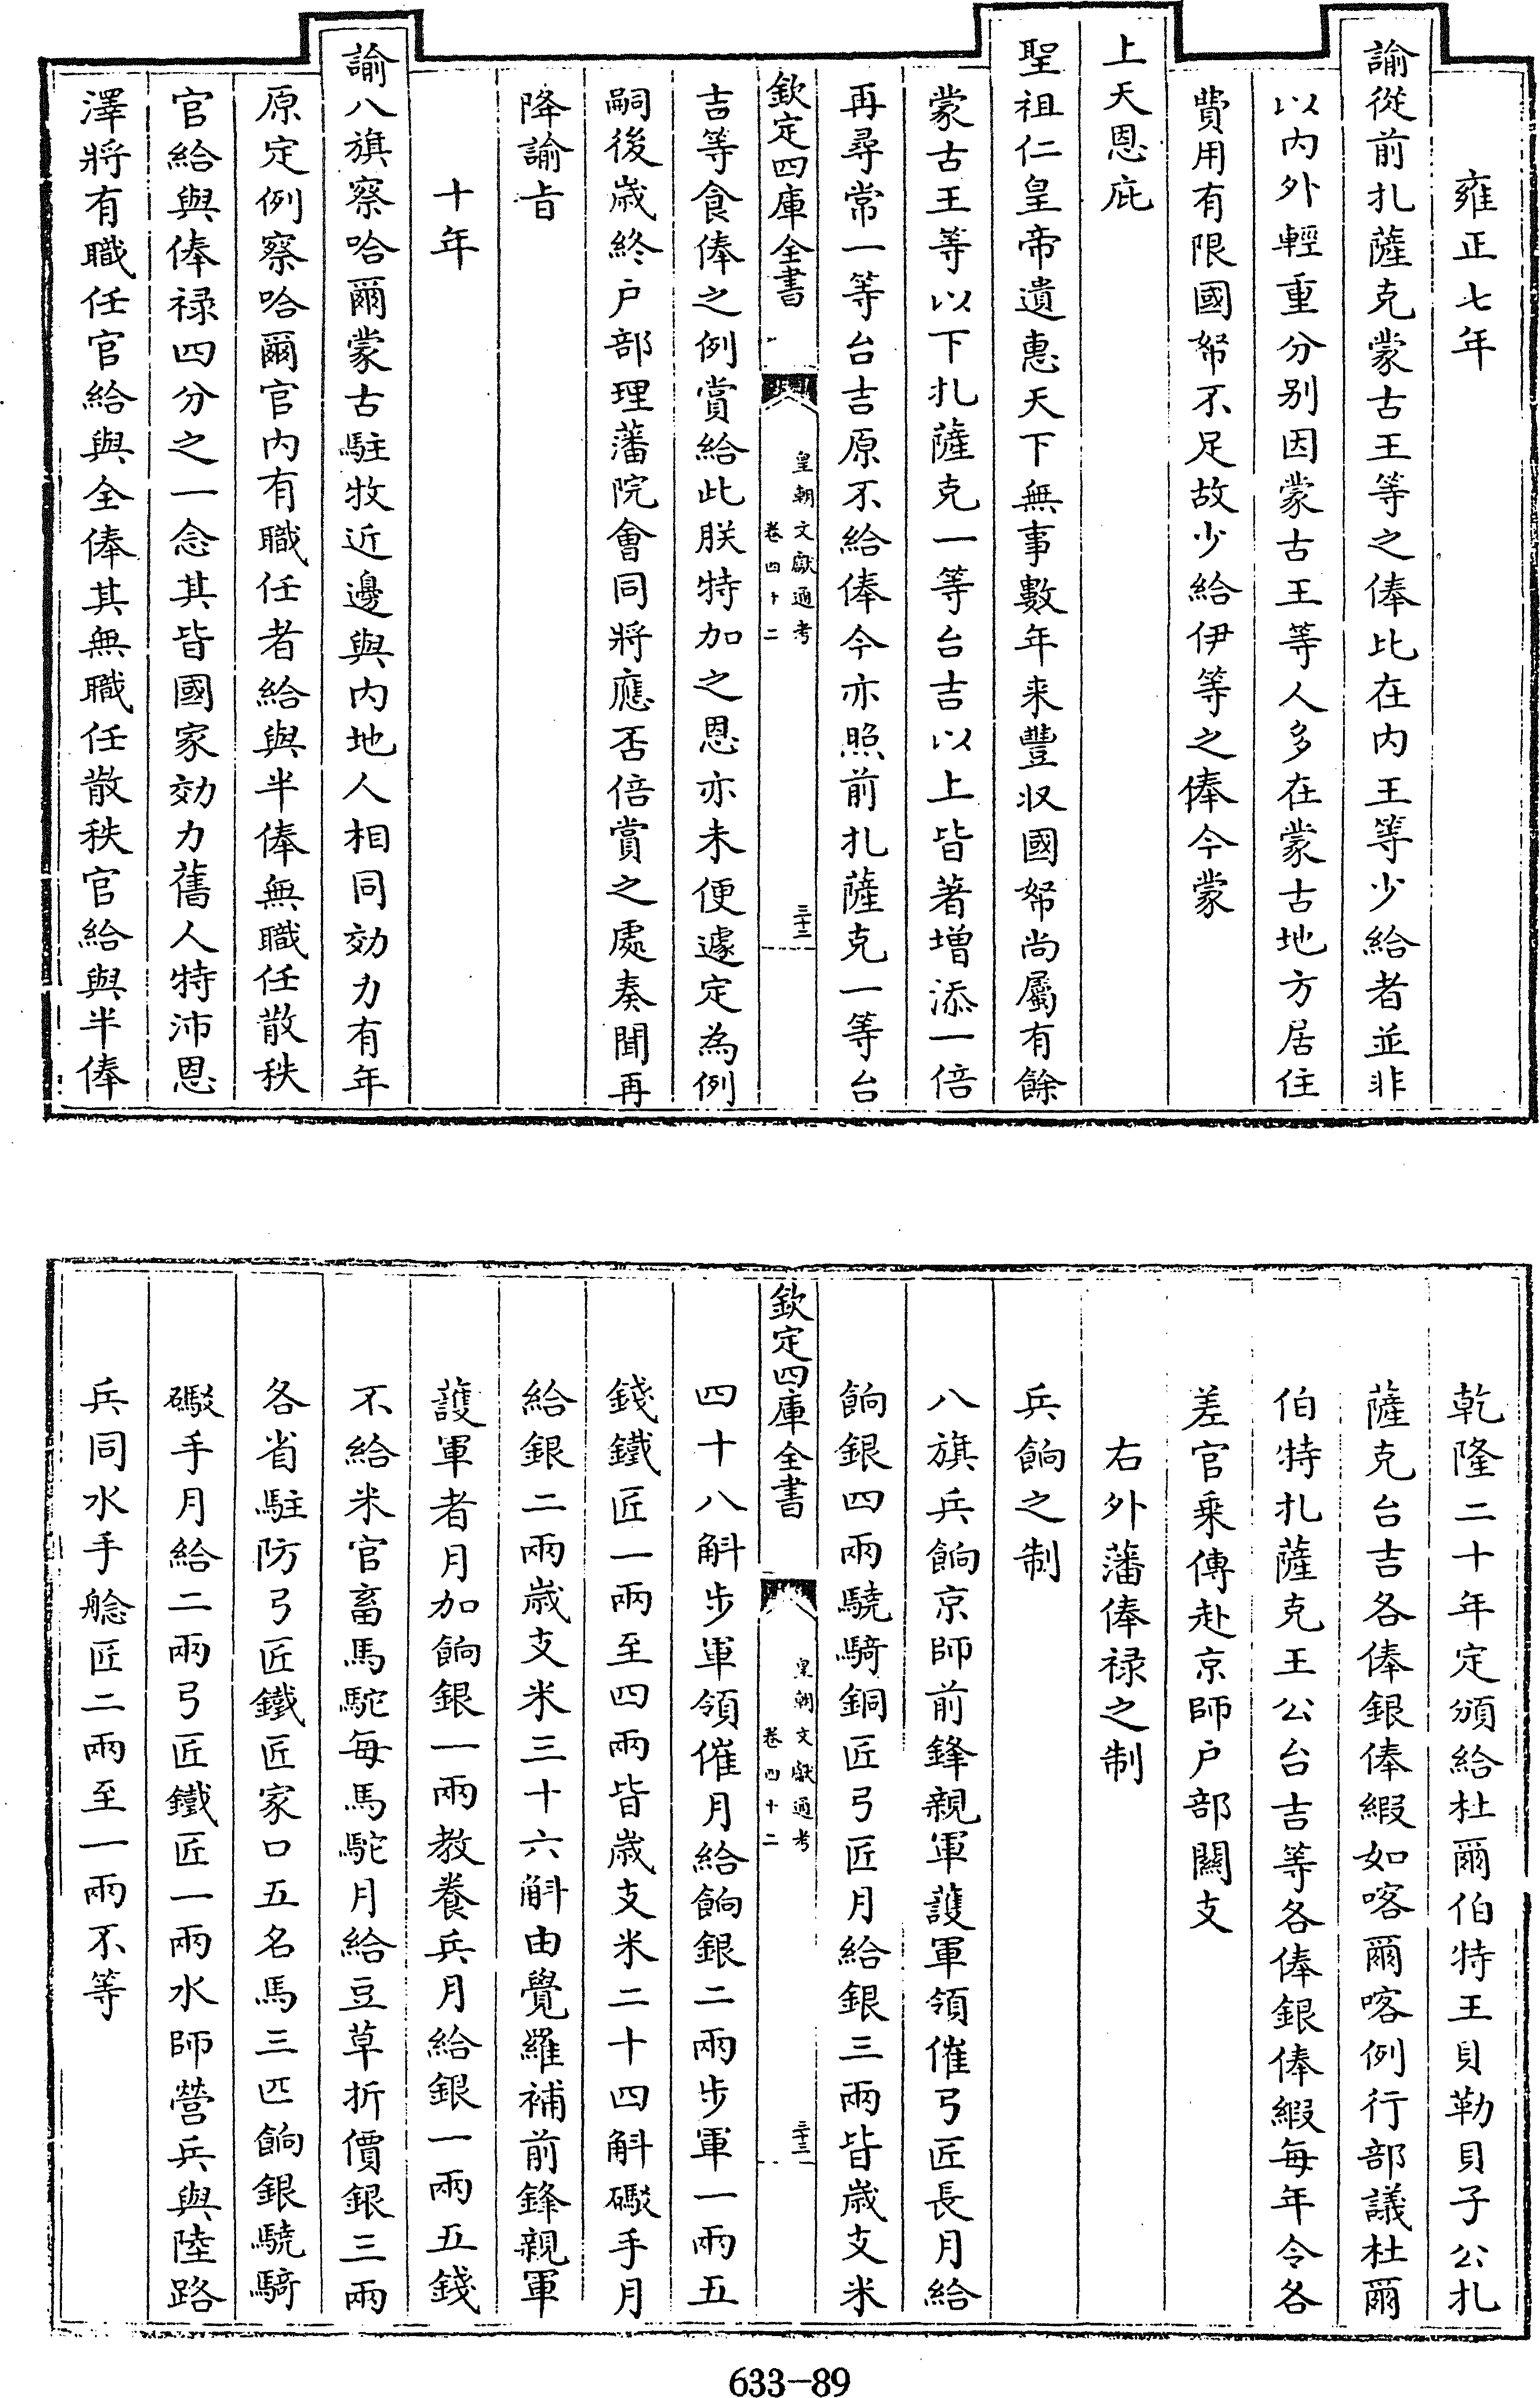 雍正七年
諭從前扎薩克蒙古王等之俸比在内王等少給者並非
以内外輕重分别因蒙古王等人多在蒙古地方居住
費用有限國帑不足故少給伊等之俸今蒙
上天恩庇
聖祖仁皇帝遺惠天下無事數年来豐収國帑尚屬有餘
蒙古王等以下扎薩克一等台吉以上皆著增添一倍
再尋常一等台吉原不給俸今亦照前扎薩克一等台
欽定四庫全書
皇朝文獻通考
卷四十二
三十二
吉等食俸之例賞給此朕特加之恩亦未便遽定為例
嗣後歲終户部理藩院會同將應否倍賞之處奏聞再
降諭旨
十年
諭八旗察哈爾蒙古駐牧近邊與内地人相同効力有年
原定例察哈爾官内有職任者給與半俸無職任散秩
官給與俸禄四分之一念其皆國家効力舊人特沛恩
澤將有職任官給與全俸其無職任散秩官給與半俸
乾隆二十年定頒給杜爾伯特王貝勒貝子公扎
薩克台吉各俸銀俸緞如喀爾喀例行部議杜爾
伯特扎薩克王公台吉等各俸銀俸緞每年令各
差官乗傳赴京師户部關支
右外藩俸禄之制
兵餉之制
八旗兵餉京師前鋒親軍護軍領催弓匠長月給
餉銀四兩驍騎銅匠弓匠月給銀三兩皆歲支米
欽定四庫全書
皇朝文獻通考
卷四十二
三十三
四十八斛步軍領催月給餉銀二兩步軍一兩五
錢鐵匠一兩至四兩皆歲支米二十四斛礮手月
給銀二兩歲支米三十六斛由覺羅補前鋒親軍
護軍者月加餉銀一兩教養兵月給銀一兩五錢
不給米官畜馬駝每馬駝月給豆草折價銀三兩
各省駐防弓匠鐵匠家口五名馬三匹餉銀驍騎
礮手月給二兩弓匠鐵匠一兩水師營兵與陸路
兵同水手艌匠二兩至一兩不等
633-89